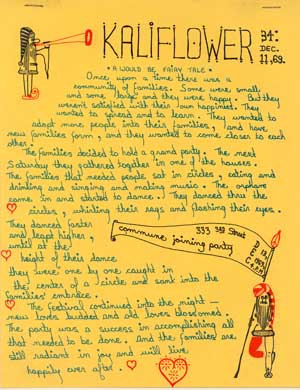 KALIFLOWER
34:
DEC.
11,69.
• A WOULD BE FAIRY TALE •
Once upon a time there was a
community of families. Some were small,
and some large and they were happy. But they
weren't satisfied with their own happiness. They
wanted to spread and to learn. They wanted to
adopt more people into their families, and have
new families form, and they wanted to come closer to each
other.
The families decided to hold a grand party. The next
Saturday they gathered together in one of the houses.
The families that needed people sat in circles, eating and
drinking and singing and making music. The orphans
came in and started to dance. They danced thru the
circles, whirling their rags and flashing their eyes.
They danced faster
and leapt higher,
until at the
height of their dance
they were one by one caught in
the center of a circle and sank into the
families embrace.
commune joining party
333 3rd Street
DEC 13,
1969
The festival continued into the night —
new loves budded and old loves blossomed.
The party was a success in accomplishing all
that needed to be done. And the families are
still radiant in joy and will live
happily ever after.